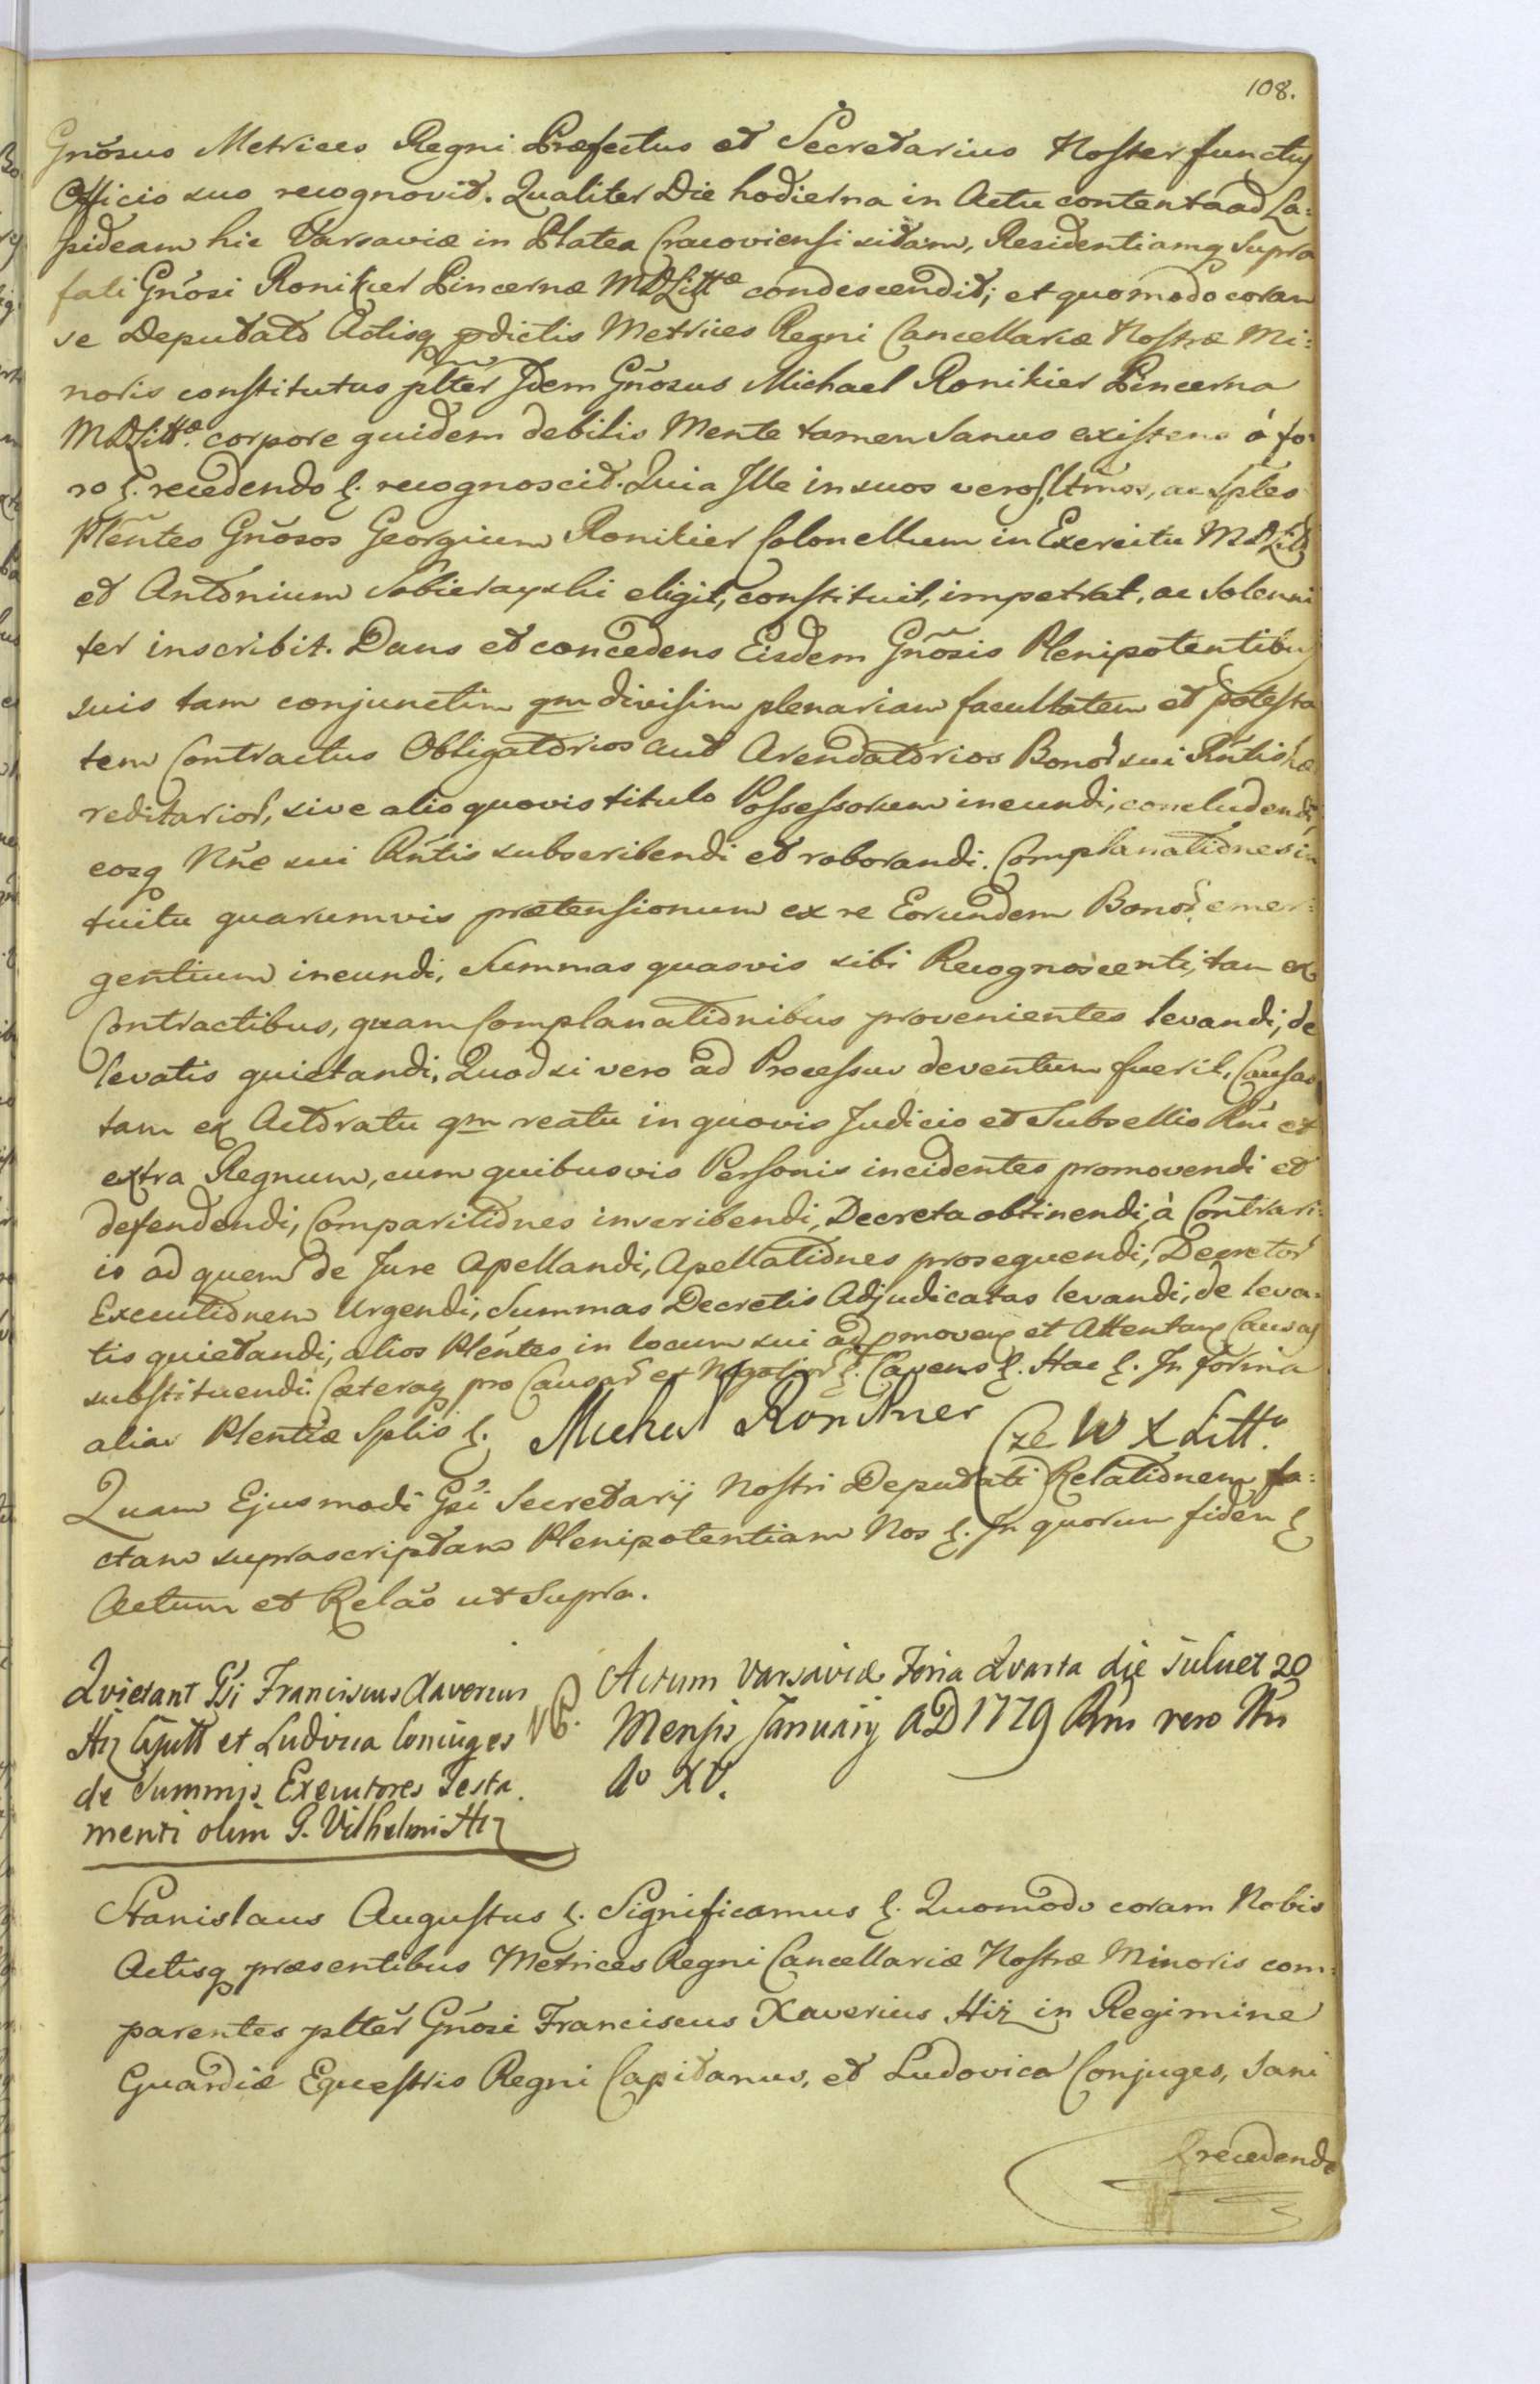 108.
Gnosus Metrices Regni Præfectus et Secretarius Noster functus
Officio suo recognovit. Qualiter Die hodierna in Actu contenta ad La=
pideam hic Varsaviæ in Platea Cracoviensi sitam, Residentiamq supra
fati Gnosi Ronikier Pincernæ MDLittæ condescendit; et quomodo coram
se Deputato Actisq pdictis Metrices Regni Cancellariæ Nostræ Mi=
noris constitutus plter Idem Gnosus Michael Ronikier Pincerna
MDLittæ corpore quidem debilis Mente tamen Sanus existens à fo=
ro &. recedendo &. recognoscit. Quia Ille in suos veros, Ltmos, ac Sples
Plentes Gnosos Georgium Ronikier Colonellum in Exercitu MDLitt
et Antonium Sobierayski eligit, constituit, impetrat, ac Solenni
ter inscribit. Dans et concedens Eisdem Gnosis Plenipotentibus
suis tam conjunctim qm divisim plenariam facultatem et potesta
tem Contractus Obligatorios aut Arendatorios Bonor sui Rntis hæ
reditarior, sive alio quovis titulo Possessorum ineundi, concludendi,
eosq Nne sui Rntis subscribendi et roborandi. Complanationes in
tuitu quarumvis prætensionum ex re Eorundem Bonor emer=
gentium ineundi, Summas quasvis sibi Recognoscenti, tam ex
Contractibus, quam Complanationibus provenientes levandi, de
levatis quietandi, Quodsi vero ad Processum deventum fuerit, Causas
tam ex Actoratu qm reatu in quovis Judicio et Subsellio Rni et
extra Regnum, cum quibusvis Personis incidentes promovendi et
defendendi, Comparitiones inscribendi, Decreta obtinendi, à Contrari=
is ad quem de Jure Apellandi, Apellationes prosequendi, Decretor
Executionem Urgendi, Summas Decretis Adjudicatas levandi, de leva=
tis quietandi, alios Plentes in locum sui ad pmovens et Attentans Causas
substituendi. Cæteraq pro Causar et Negotior &. Cavens &. Hac &. In forma
alias Plentiæ Splis &. Michał Ronikier
Cze W X Litt.
Quam Ejusmodi Gsi Secretarij Nostri Deputati Relationem fa=
ctam suprascriptam Plenipotentiam Nos &. In quorum fidem &
Actum et Relao ut Supra.
Qvietant Gsi Franciscus Xaverius
Hiż Cptt et Ludovica Coniuges
de Summis Executores Testa
menti olim G. Vilhelmi Hiż
NB.
Actum Varsaviæ Feria Qvarta die scilicet 20
Mensis Januarij AD 1779 Rni vero Nri
Ao XV.
Stanislaus Augustus &. Significamus &. Quomodo coram Nobis
Actisq præsentibus Metrices Regni Cancellariæ Nostræ Minoris com=
parentes plter Gnosi Franciscus Xaverius Hiż in Regimine
Guardiæ Equestris Regni Capitanus, et Ludovica Conjuges, Sani
&recedendo